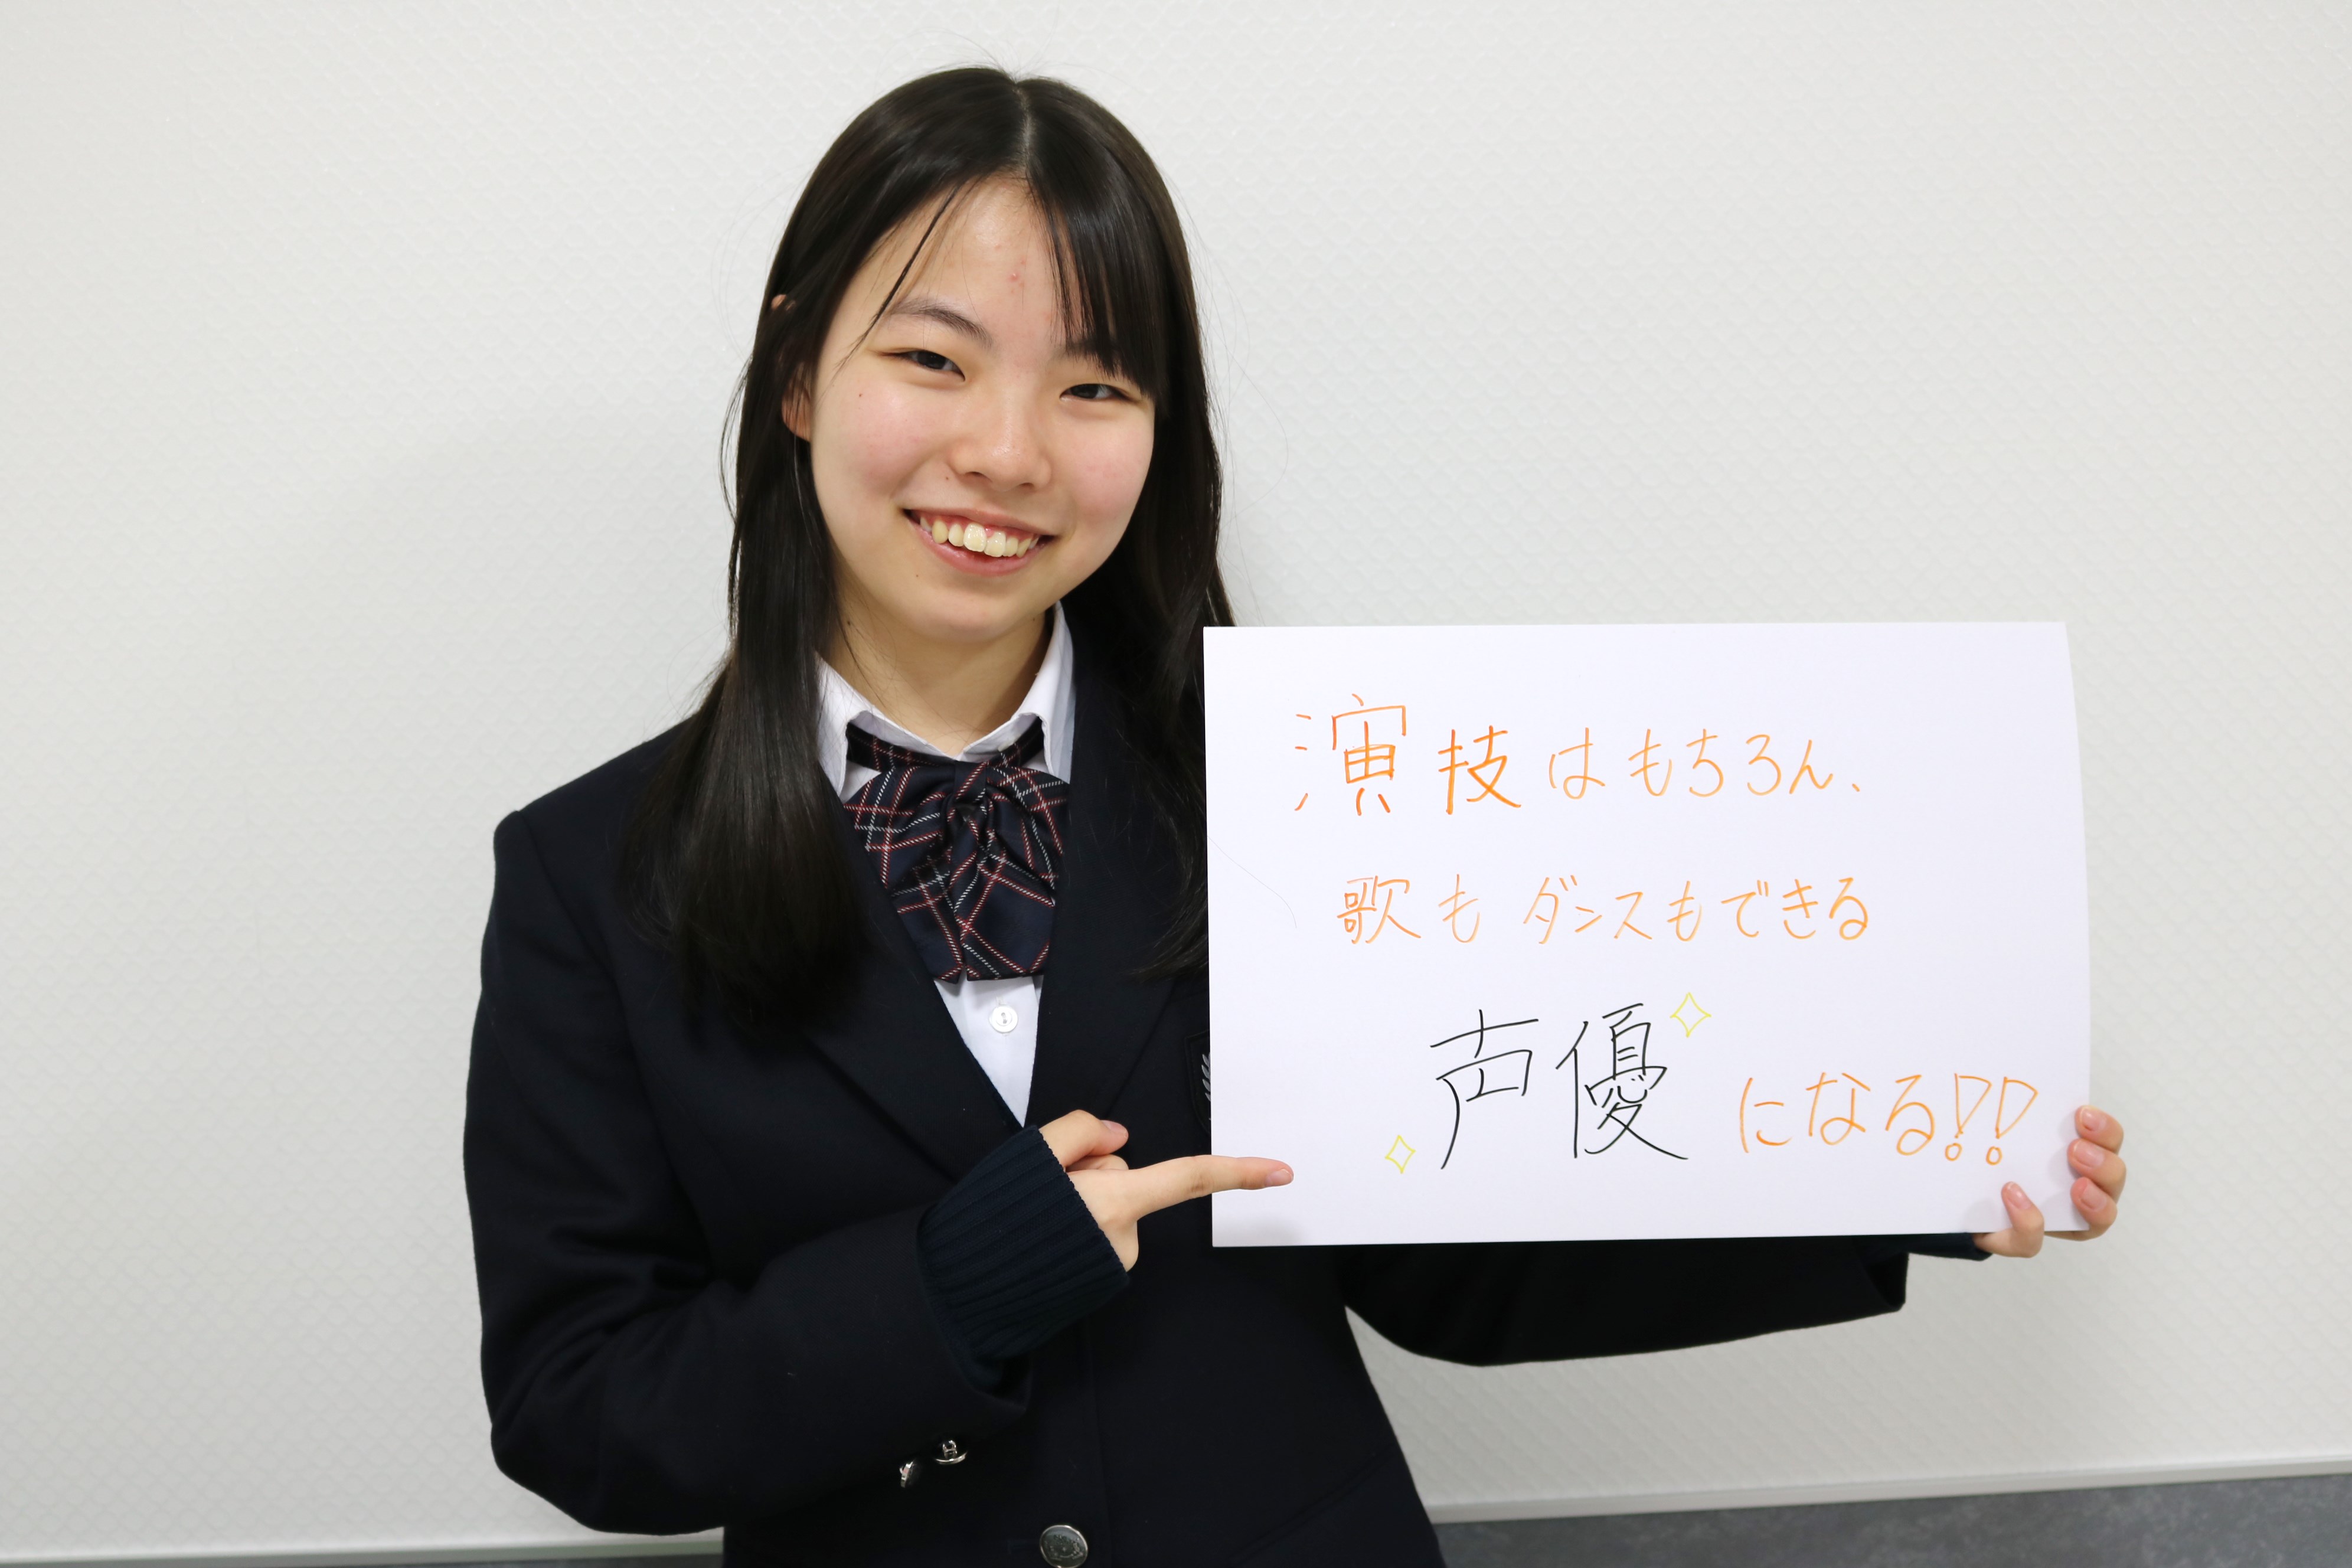 演技はもちろん、
歌もダンスもできる
声優になる!!